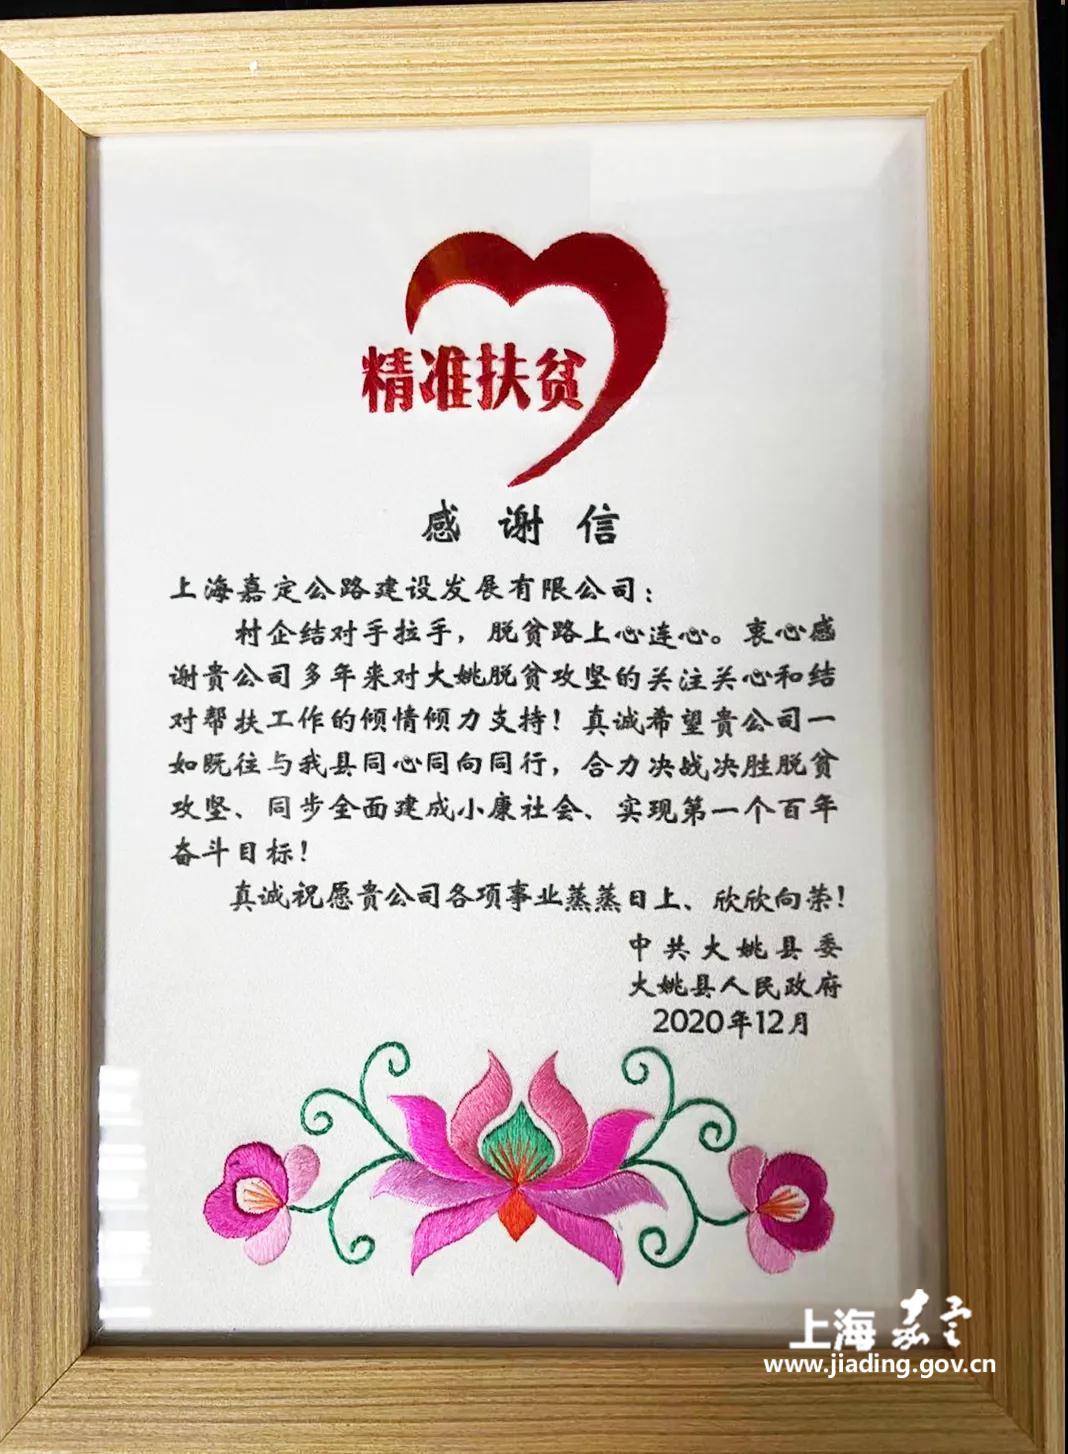 精准扶贫
感谢信
上海嘉定公路建设发展有限公司：
村企结对手拉手，脱贫路上心连心。衷心感
谢贵公司多年来对大姚脱贫攻坚的关注关心和结
对帮扶工作的倾情倾力支持！真诚希望贵公司一
如既往与我县同心同向同行，合力决战决胜脱贫
攻坚、同步全面建成小康社会、实现第一个百年
奋斗目标！
真诚祝愿贵公司各项事业蒸蒸日上、欣欣向荣！
中共大姚县委
大姚县人民政府
2020年12月
上海 嘉定
www.jiading.gov.cn